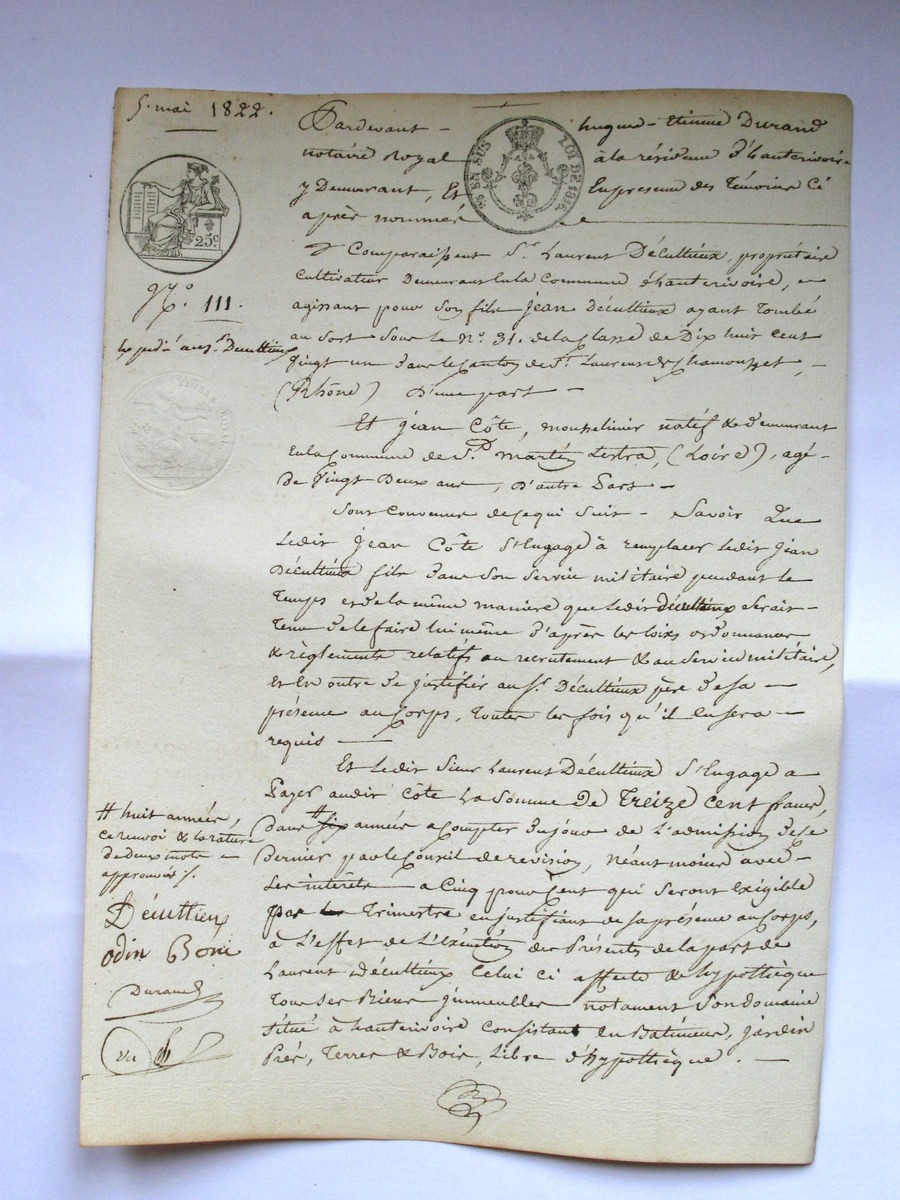 5. mai 1822.
Pardevant - hugue - Etienne Durand
notaire Royal à la résidence d'hauterivoire
y Demeurant, Et En presence des Témoins Ci
après nommes
EN SUS LOI DE 1816.
25c
N.° 111.
Expédié au s.r Décultieux
Comparaissent S.r Laurent Décultieux, propriétaire
Cultivateur Demeurant En la Commune d'hauterivoire, -
agissant pour Son fils Jean Décultieux ayant Tombé
au Sort Sous le N.° 31. de la Classe de Dix huit cent
Vingt un dans le Canton de S.t Laurent de Chamousset, -
(Rhône) D'une part -
Et jean Côte, mousselinier natif & demeurant
En la Commune de S.t martin Lestra, (Loire), agé -
De Vingt Deux ans, D'autre Part -
Sont Convenus de ce qui Suit - Savoir Que
Ledit Jean Côte S'Engage à remplacer Ledit Jean
Décultieux fils dans Son Service militaire pendant le
Temps et de la même manière que Ledit décultieux Serait -
Tenu de le faire lui même d'après les loix ordonnances
& règlements relatifs au recrutement & au Service militaire,
Et En outre de justifier au S.r Décultieux père de sa -
présence au Corps, Toutes les fois qu'il En sera -
requis -
Et Ledit Sieur Laurent Décultieux S'Engage a
Payer audit Côte La Somme De Treize Cent francs,
Dans # six années a Compter du jour de L'admission de ce
Dernier par le Conseil de revision, Néant moins avec -
Les intérêts - a Cinq pour Cent qui Seront Exigible
par Trimestre en justifiant de sa présence au Corps,
à L'effet de L'Exécution des Présents de la part de
Laurent Décultieux Celui ci affecte & hypothèque
Tous Ses Biens immeubles notament Son domaine
Situé à hauterivoire Consistant En Batiments, jardin
Prés, Terres & Bois, Libre d'hypothèque. -
# huit années,
ce renvoi & la rature
de deux mots -
approuvés
Décultieux
odin Boni
Durand